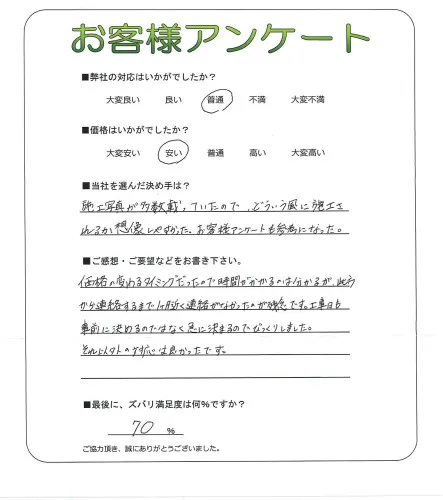 お客様アンケート
■弊社の対応はいかがでしたか？
大変良い 良い 普通 不満 大変不満
■価格はいかがでしたか？
大変安い 安い 普通 高い 大変高い
■当社を選んだ決め手は？
施工写真が多数載っていたので、どういう風に施工さ
れるか想像しやすかった。お客様アンケートも参考になった。
■ご感想・ご要望などをお書き下さい。
価格の変わるタイミングだったので時間がかかるのは分かるが、此方
から連絡するまで1ヶ月近く連絡がなかったのが残念です。工事日も
事前に決めるのではなく急に決まるのでびっくりしました。
それ以外の対応は良かったです。
■最後に、ズバリ満足度は何%ですか？
70 %
ご協力頂き、誠にありがとうございました。